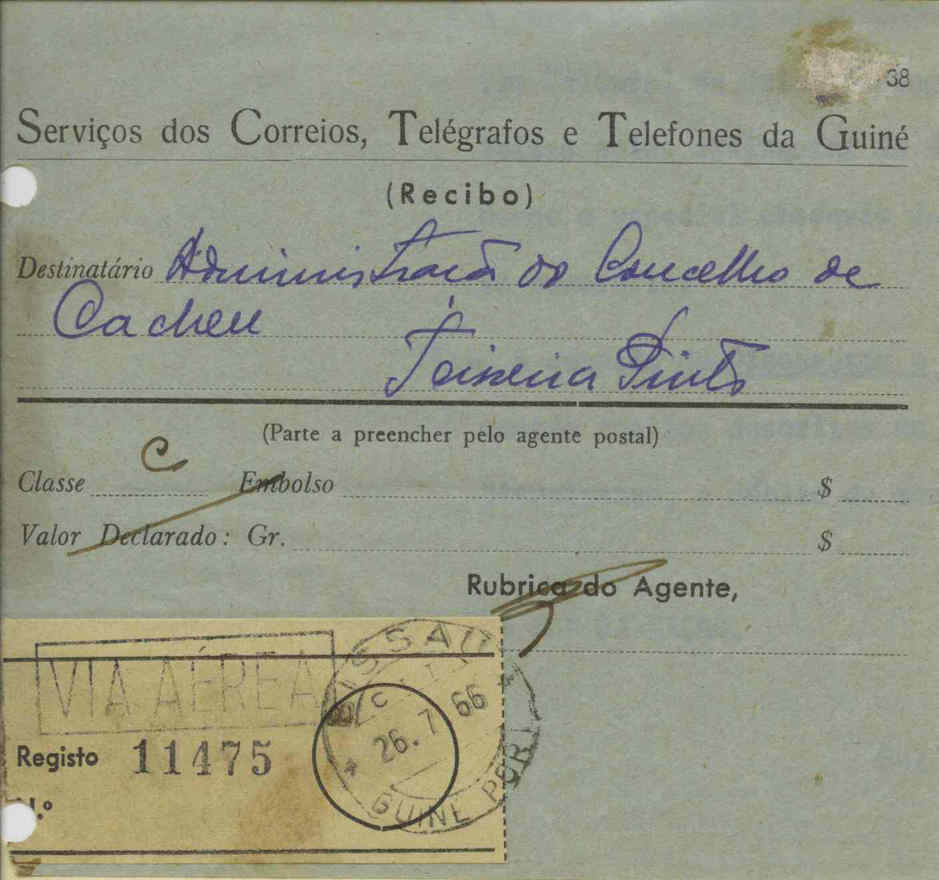 38
Serviços dos Correios, Telégrafos e Telefones da Guiné
(Recibo)
Destinatário Administração do Concelho de
Cacheu
Teixeira Pinto
(Parte a preencher pelo agente postal)
Classe C Embolso $
Valor Declarado: Gr. $
Rubrica do Agente,
VIA AÉREA
BISSAU
26.7 66
GUINÉ PORT
Registo 11475
N.º